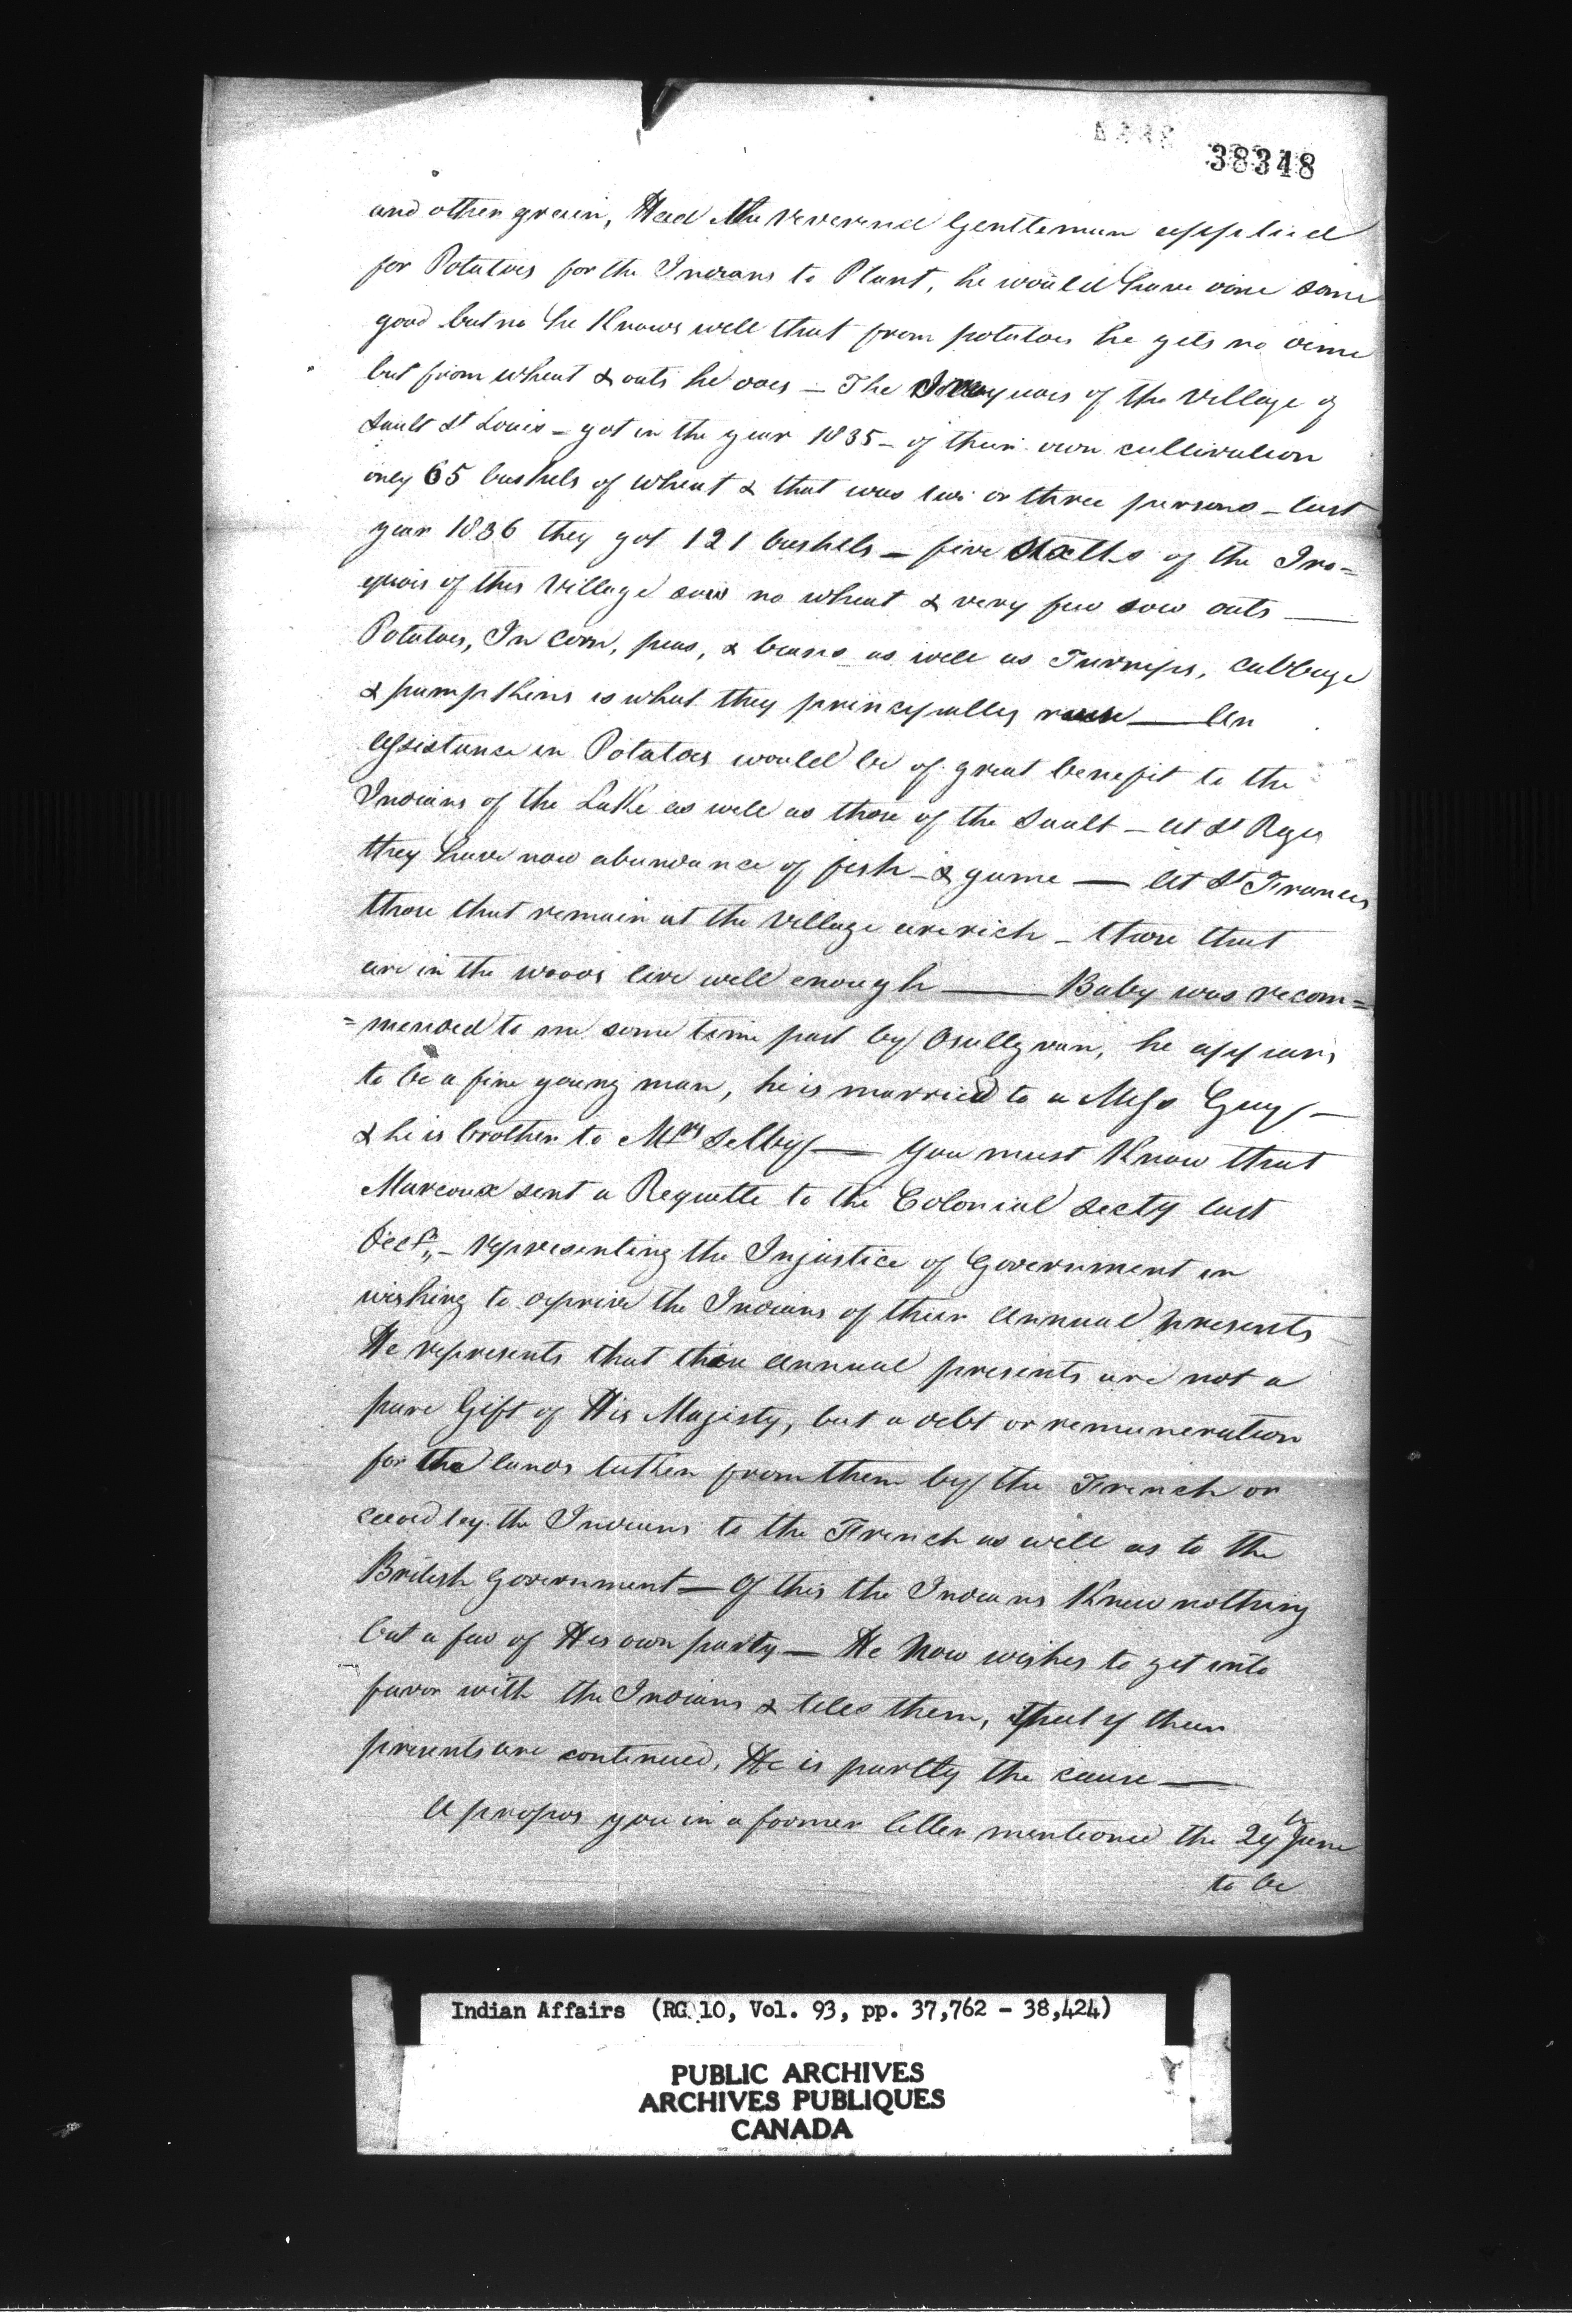 38348
and other grain, Had the Reverend Gentleman applied
for Potatoes for the Indians to Plant, he would have done some
good but no he Knows well that from potatoes he gets no dime
but from wheat & oats he does — The Iroquois of the Village of
Sault St Louis — got in the year 1835 — of their own cultivation
only 65 bushels of wheat & that was two or three persons — last
year 1836 they got 121 bushels — five sixths of the Iro=
quois of this Village sow no wheat & very few sow oats —
Potatoes, In Corn, peas, & beans as well as Turnips, Cabbage
& pumpkins is what they principally raise — An
assistance in Potatoes would be of great benefit to the
Indians of the Lake as well as those of the Sault — At St Regis
they have now abundance of fish — & game — At St Francis
those that remain at the Village are rich — those that
are in the woods live well enough — Baby was recom=
=mended to me some time past by Osullyvan, he appears
to be a fine young man, he is married to a Miss Guy —
& he is brother to Mrs Selby — You must Know that
Marcoux sent a Requette to the Colonial Secty last
Decr, — representing the Injustice of Government in
wishing to deprive the Indians of their annual presents
He represents that their annual presents are not a
pure Gift of His Majesty, but a debt or remuneration
for the lands taken from them by the French or
ceded by the Indians to the French as well as to the
British Government — Of this the Indians Knew nothing
but a few of His own party — He Now wishes to get into
favor with the Indians & tells them, that if their
presents are continued, He is partly the cause —
A propos you in a former letter mentioned the June
to be
Indian Affairs (RG 10, Vol. 93, pp. 37,762 - 38,424)
PUBLIC ARCHIVES
ARCHIVES PUBLIQUES
CANADA